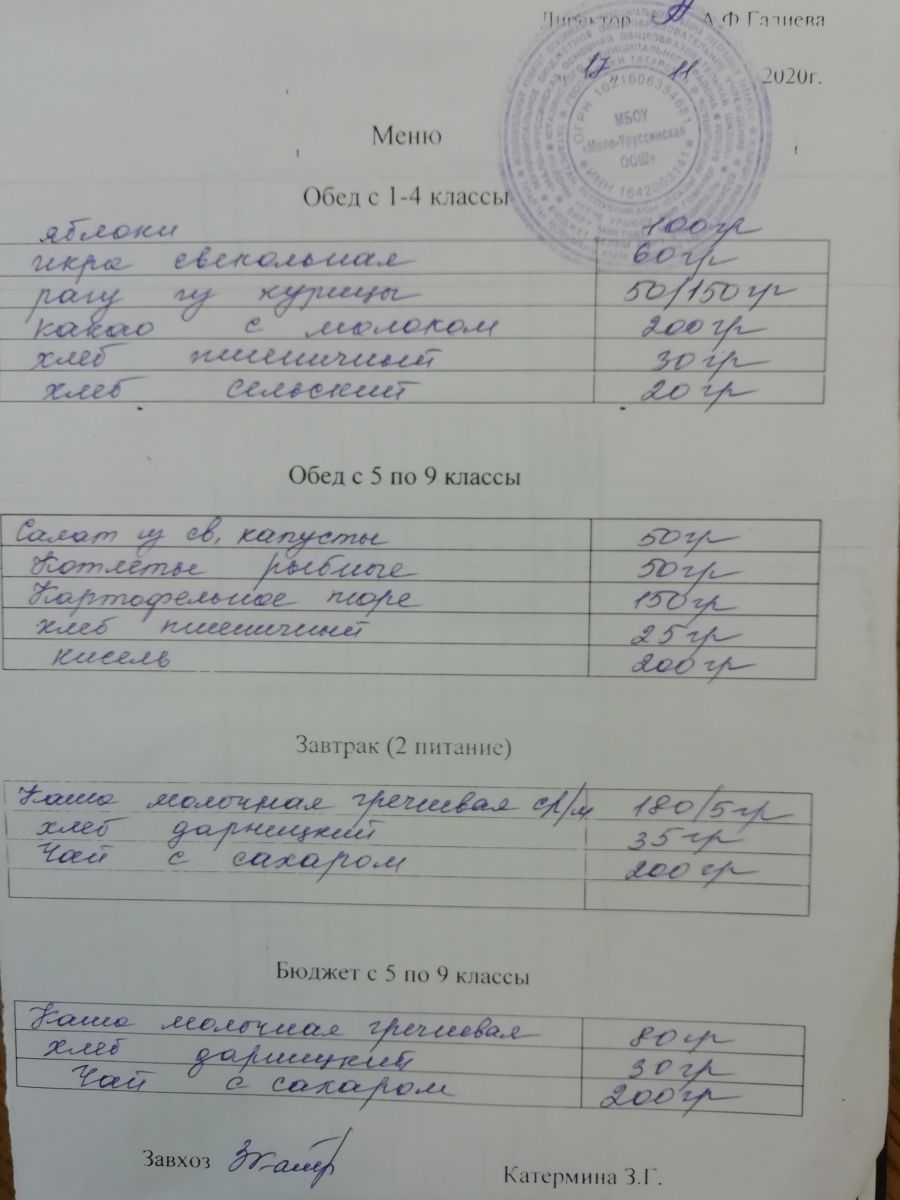 Директор А.Ф.Газиева
17 11 2020г.
ОГРН 1021606354681
МБОУ
«Мало-Уруссинская
ООШ»
ИНН 1642003141
Меню
Обед с 1-4 классы
яблоки 100гр
икра свекольная 60гр
рагу из курицы 50/150гр
какао с молоком 200гр
хлеб пшеничный 30гр
хлеб сельский 20гр
Обед с 5 по 9 классы
Салат из св. капусты 50гр
Котлеты рыбные 50гр
Картофельное пюре 150гр
хлеб пшеничный 25гр
кисель 200гр
Завтрак (2 питание)
Каша молочная гречневая с/м 180/5гр
хлеб дарницкий 35гр
Чай с сахаром 200гр
Бюджет с 5 по 9 классы
Каша молочная гречневая 80гр
хлеб дарницкий 30гр
Чай с сахаром 200гр
Завхоз
Катермина З.Г.